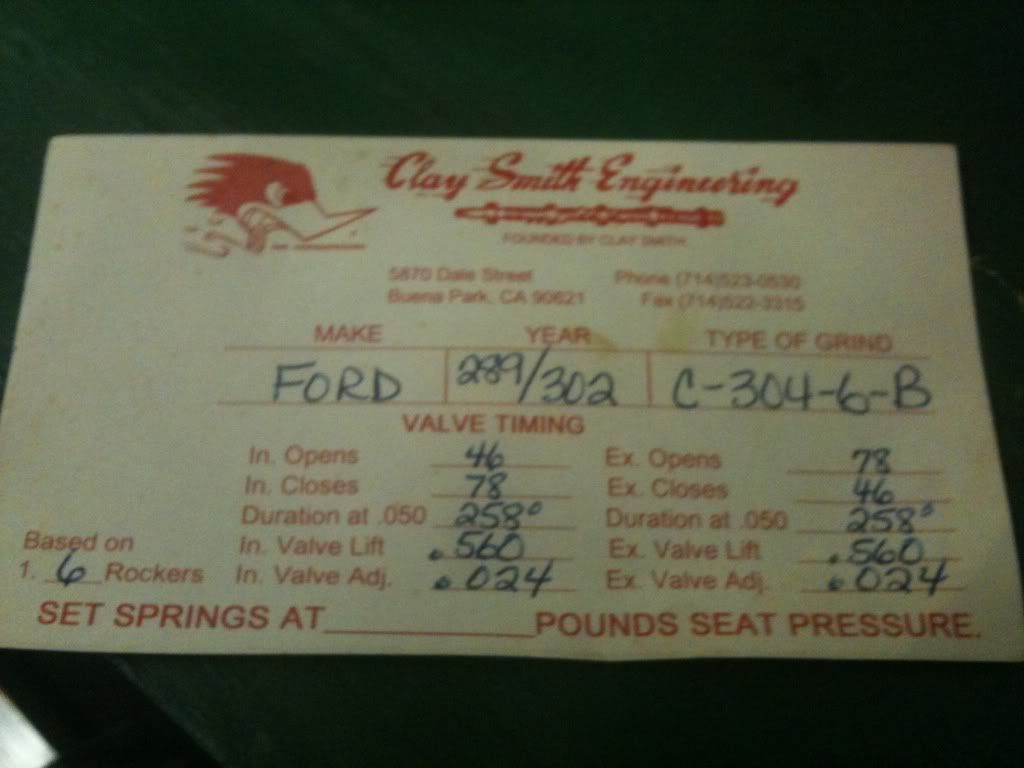 Clay Smith Engineering
FOUNDED BY CLAY SMITH
5870 Dale Street Phone (714)523-0530
Buena Park, CA 90621 Fax (714)522-3315
MAKE YEAR TYPE OF GRIND
FORD 289/302 C-304-6-B
VALVE TIMING
In. Opens 46 Ex. Opens 78
In. Closes 78 Ex. Closes 46
Duration at .050 258° Duration at .050 258°
Based on In. Valve Lift .560 Ex. Valve Lift .560
1. 6 Rockers In. Valve Adj. .024 Ex. Valve Adj. .024
SET SPRINGS AT POUNDS SEAT PRESSURE.